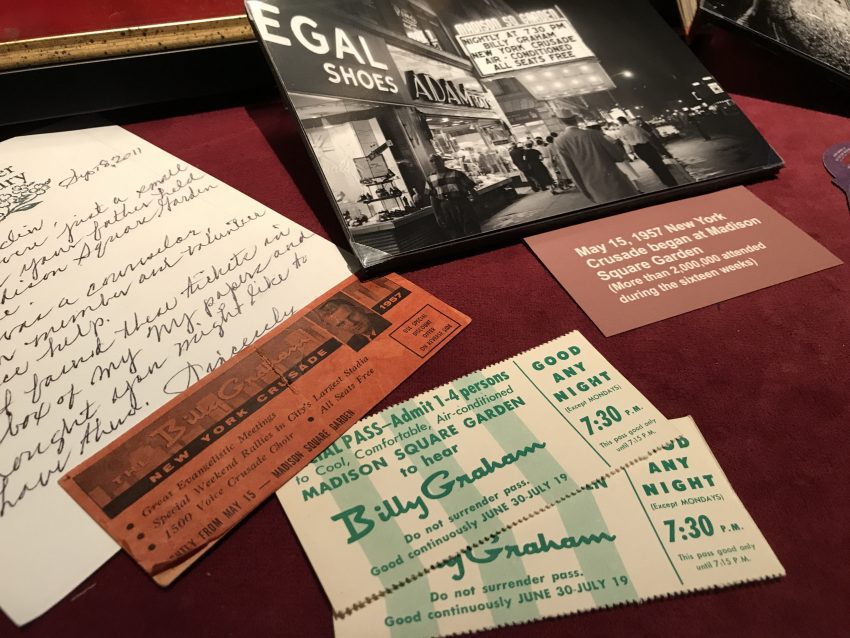 EGAL
SHOES
ADAM
MADISON SQ
NIGHTLY AT 7:30 PM
BILLY GRAHAM
NEW YORK CRUSADE
AIR-CONDITIONED
ALL SEATS FREE
May 15, 1957 New York
Crusade began at Madison
Square Garden
(More than 2,000,000 attended
during the sixteen weeks)
2011
just a
your father held
Madison Square Garden
was a counselor
member and volunteer
help.
I found these tickets in
box of my papers and
thought you might like to
have them. Sincerely
1957
USE SPECIAL
DISCOUNT
OFFER
ON REVERSE SIDE
THE Billy Graham
NEW YORK CRUSADE
• Great Evangelistic Meetings
• Special Weekend Rallies in City's Largest Stadia
• 1500 Voice Crusade Choir • All Seats Free
FROM MAY 15 — MADISON SQUARE GARDEN
IAL PASS—Admit 1-4 persons
to Cool, Comfortable, Air-conditioned
MADISON SQUARE GARDEN
to hear
Billy Graham
Do not surrender pass.
Good continuously JUNE 30-JULY 19
GOOD
ANY
NIGHT
(Except MONDAYS)
7:30 P.M.
This pass good only
until 7:15 P.M.
y Graham
Do not surrender pass.
Good continuously JUNE 30-JULY 19
GOOD
ANY
NIGHT
(Except MONDAYS)
7:30 P.M.
This pass good only
until 7:15 P.M.